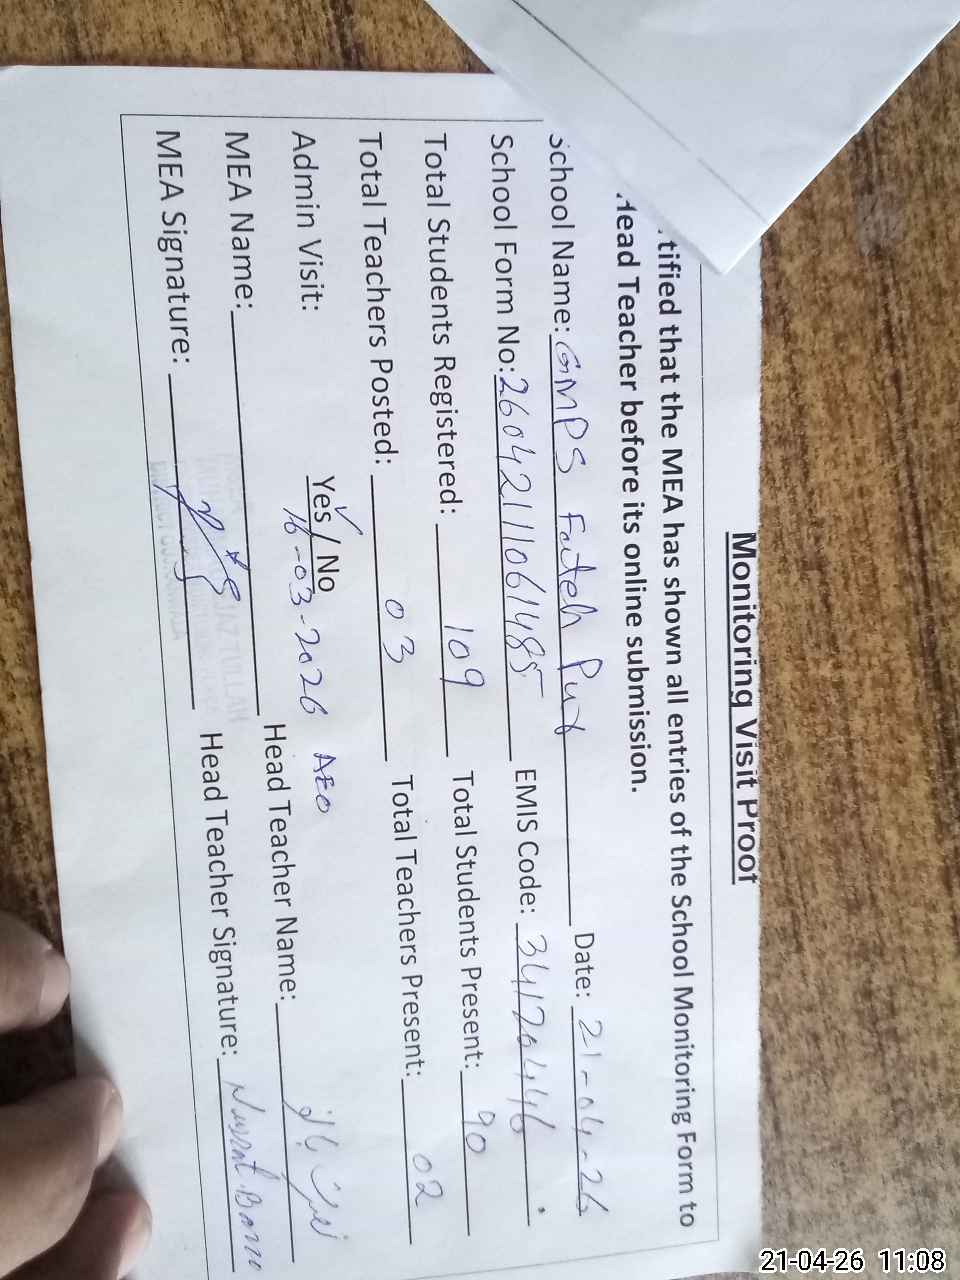 Monitoring Visit Proof
tified that the MEA has shown all entries of the School Monitoring Form to
Head Teacher before its online submission.
School Name: GMPS Fateh Pur Date: 21-04-26
School Form No: 2604211061485 EMIS Code: 34120446
Total Students Registered: 109 Total Students Present: 90
Total Teachers Posted: 03 Total Teachers Present: 02
Admin Visit: Yes / No
16-03-2026 AEO
MEA Name: Head Teacher Name:
MEA Signature: Head Teacher Signature: Nusrat Bano
21-04-26 11:08